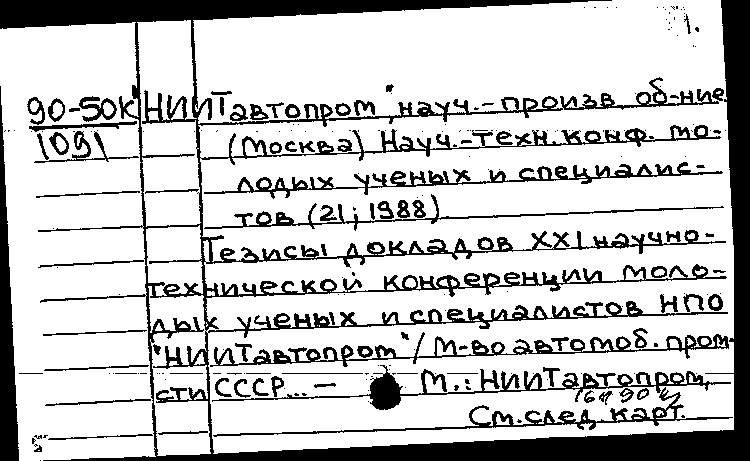 1.
90-50К "НИИТавтопром", науч.-произв. об-ние
1091 (Москва) Науч.-техн. конф. мо-
лодых ученых и специалис-
тов (21; 1988).
Тезисы докладов XXI научно-
технической конференции моло-
дых ученых и специалистов НПО
"НИИТавтопром" / М-во автомоб. пром-
сти СССР... – М.: НИИТавтопром,
См. след. карт.